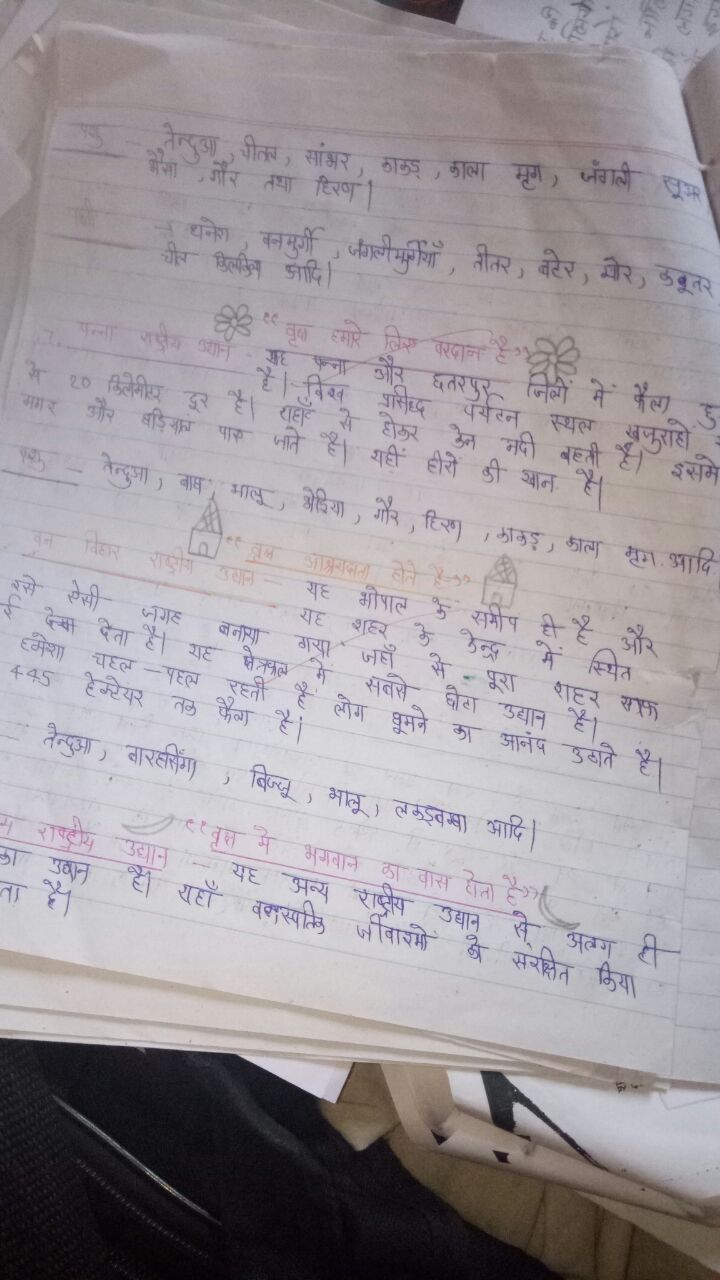 पशु - तेन्दुआ, चीतल, सांभर, काकड़, काला मृग, जंगली सूअर
भैंसा, गौर तथा हिरण।
पक्षी - धनेश, वनमुर्गी, जंगलीमुर्गियाँ, तीतर, बटेर, मोर, कबूतर
चील आदि।
"वृक्ष हमारे लिए वरदान है"
7. पन्ना राष्ट्रीय उद्यान - यह पन्ना और छतरपुर जिलों में फैला
है। विश्व प्रसिद्ध पर्यटन स्थल खजुराहो
से 20 किलोमीटर दूर है। यहाँ से होकर केन नदी बहती है। इसमें
मगर और घड़ियाल पाए जाते है। यहीं हीरों की खान है।
पशु - तेन्दुआ, बाघ, भालू, भेड़िया, गौर, हिरण, काकड़, काला मृग आदि
"वृक्ष आश्रयदाता होते है"
वन विहार राष्ट्रीय उद्यान - यह भोपाल के समीप ही है और
यह शहर के केन्द्र में स्थित
इसे ऐसी जगह बनाया गया जहाँ से पूरा शहर साफ
देता है। यह क्षेत्रफल में सबसे छोटा उद्यान है।
हमेशा चहल-पहल रहती है लोग घूमने का आनंद उठाते है।
445 हेक्टेयर तक फैला है।
- तेन्दुआ, बारहसिंगा, बिज्जू, भालू, लकड़बग्घा आदि।
"वृक्ष में भगवान का वास होता है"
राष्ट्रीय उद्यान - यह अन्य राष्ट्रीय उद्यान से अलग ही
का उद्यान है। यहाँ वनस्पति जीवाश्मों को संरक्षित किया
ता है।